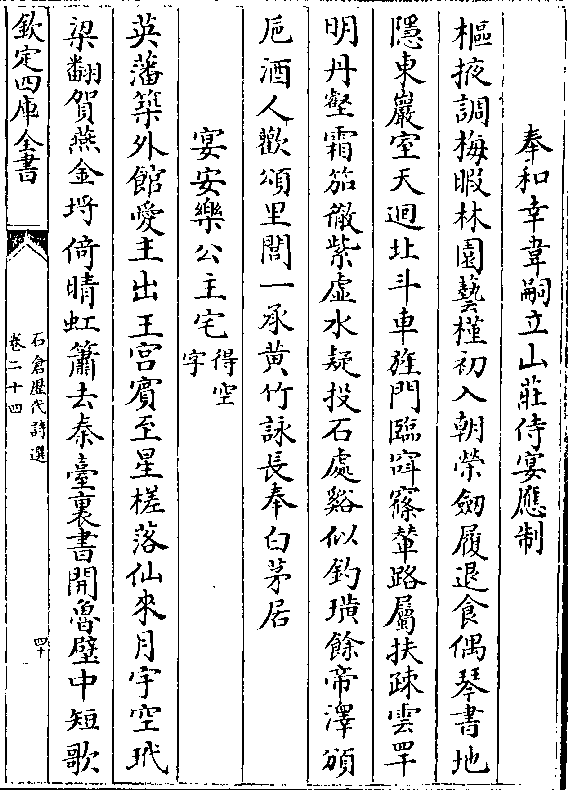 奉和幸韋嗣立山莊侍宴應制
樞掖調梅暇林園藝槿初入朝榮劒履退食偶琴書地
隱東巖室天迴北斗車旌門臨窅窱輦路屬扶疎雲罕
明丹壑霜笳徹紫虛水疑投石處谿似釣璜餘帝澤頒
巵酒人歡頌里閭一承黄竹詠長奉白茅居
宴安樂公主宅得空字
英藩築外館愛主出王宮賓至星槎落仙來月宇空玳
梁翻賀燕金埒倚晴虹簫去秦臺裏書開魯壁中短歌
欽定四庫全書
石倉歴代詩選
卷二十四
四十